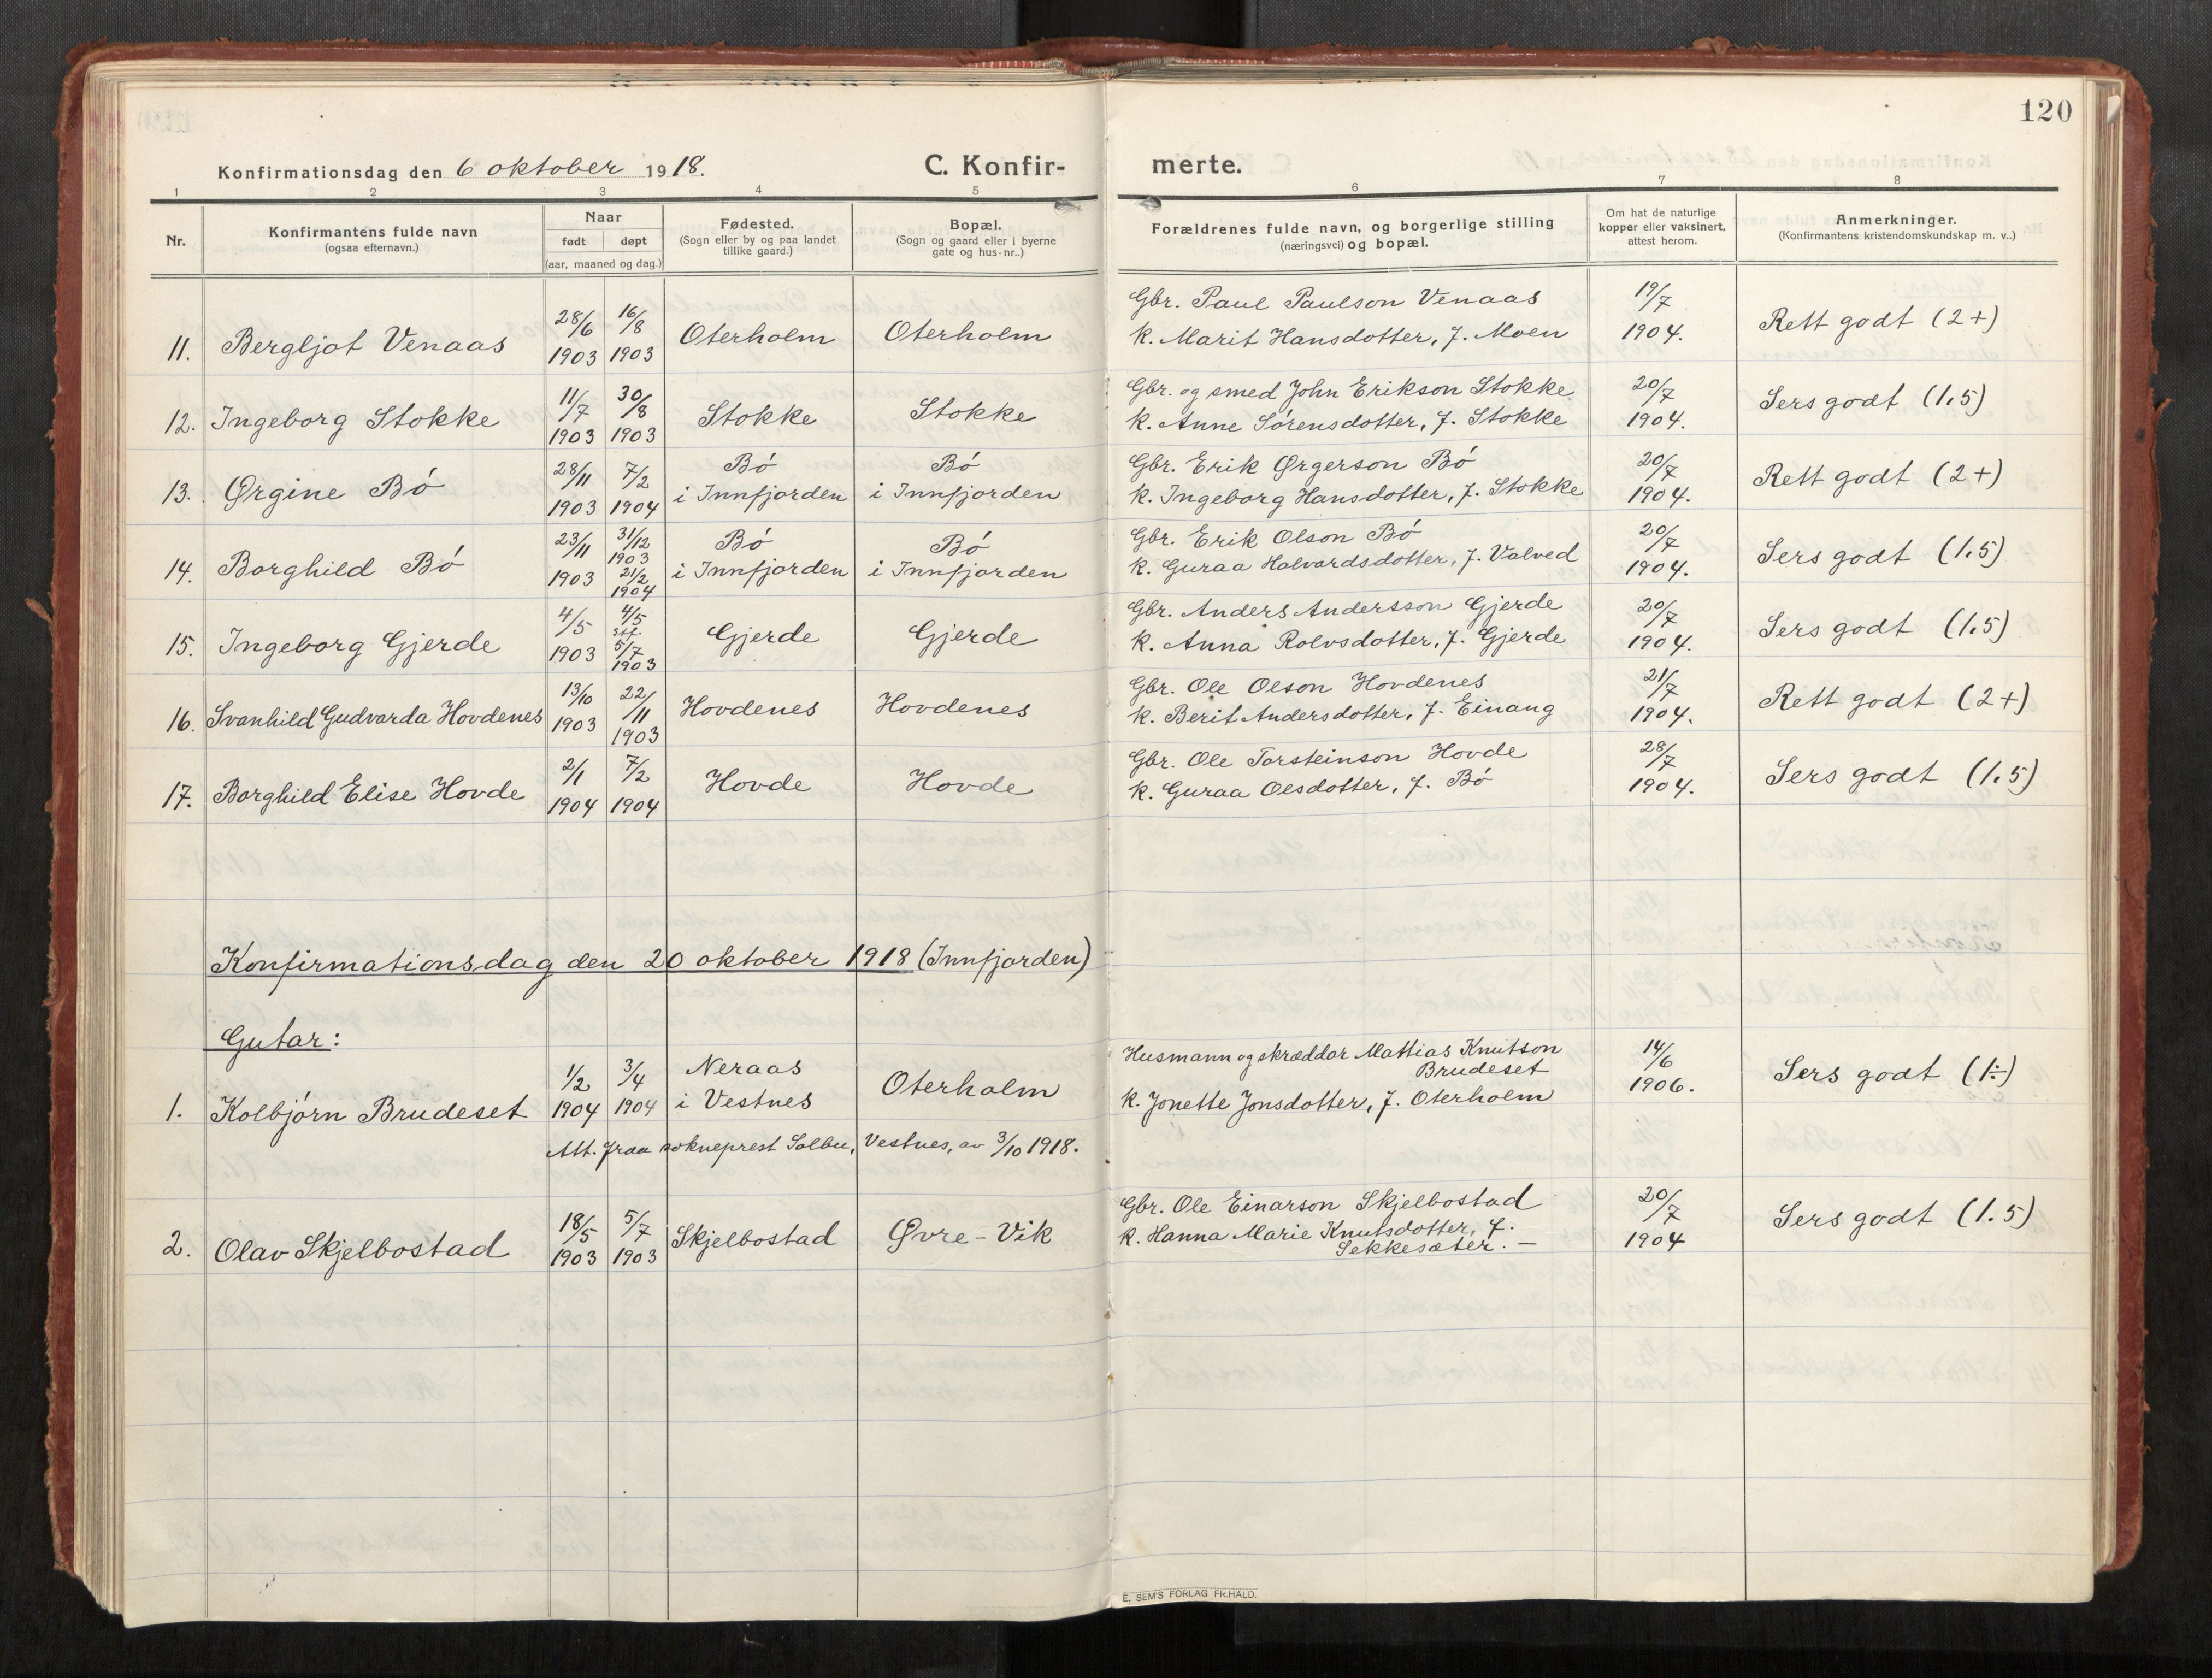 120
Konfirmationsdag den 6 oktober 1918.
C. Konfir-
merte.
1 2 3 4 5 6 7 8
Nr.
Konfirmantens fulde navn
(ogsaa efternavn.)
Naar
født døpt
(aar, maaned og dag.)
Fødested.
(Sogn eller by og paa landet
tillike gaard.)
Bopæl.
(Sogn og gaard eller i byerne
gate og hus-nr..)
Forældrenes fulde navn, og borgerlige stilling
(næringsvei) og bopæl.
Om hat de naturlige
kopper eller vaksinert,
attest herom.
Anmerkninger.
(Konfirmantens kristendomskundskap m. v..)
11. Bergljot Venaas 28/6 1903 16/8 1903 Oterholm Oterholm
Gbr. Paul Paulson Venaas
k. Marit Hansdotter, f. Moen
19/7 1904. Rett godt (2+)
12. Ingeborg Stokke 11/7 1903 30/8 1903 Stokke Stokke
Gbr. og smed John Erikson Stokke
k. Anne Sørensdotter, f. Stokke
20/7 1904. Sers godt (1.5)
13. Ørgine Bó 28/11 1903 7/2 1904 Bó i Innfjorden Bó i Innfjorden
Gbr. Erik Ørgerson Bó
k. Ingeborg Hansdotter, f. Stokke
20/7 1904. Rett godt (2+)
14. Borghild Bó 23/11 1903 31/12 1903 21/2 1904 Bó i Innfjorden Bó i Innfjorden
Gbr. Erik Olson Bó
k. Guraa Halvardsdotter, f. Valved
20/7 1904. Sers godt (1.5)
15. Ingeborg Gjerde 4/5 1903 4/5 stf. 5/7 1903 Gjerde Gjerde
Gbr. Anders Andersson Gjerde
k. Anna Rolvsdotter, f. Gjerde
20/7 1904. Sers godt (1.5)
16. Svanhild Gudvarda Hovdenes 13/10 1903 22/11 1903 Hovdenes Hovdenes
Gbr. Ole Olson Hovdenes
k. Berit Andersdotter, f. Einang
21/7 1904. Rett godt (2+)
17. Borghild Elise Hovde 2/1 1904 7/2 1904 Hovde Hovde
Gbr. Ole Torsteinson Hovde
k. Guraa Olsdotter, f. Bó
28/7 1904. Sers godt (1.5)
Konfirmationsdag den 20 oktober 1918 (Innfjorden)
Gutar:
1. Kolbjórn Brudeset 1/2 1904 3/4 1904 Neraas i Vestnes Oterholm
Husmann og skræddar Mattias Knutson
Brudeset
k. Jonette Jonsdotter, f. Oterholm
14/6 1906. Sers godt (1÷)
Att. fraa sokneprest Solbu, Vestnes, av 3/10 1918.
2. Olav Skjelbostad 18/5 1903 5/7 1903 Skjelbostad Øvre-Vik
Gbr. Ole Einarson Skjelbostad
k. Hanna Marie Knutsdotter, f.
Sekkesæter. —
20/7 1904 Sers godt (1.5)
E. SEM'S FORLAG FR.HALD.